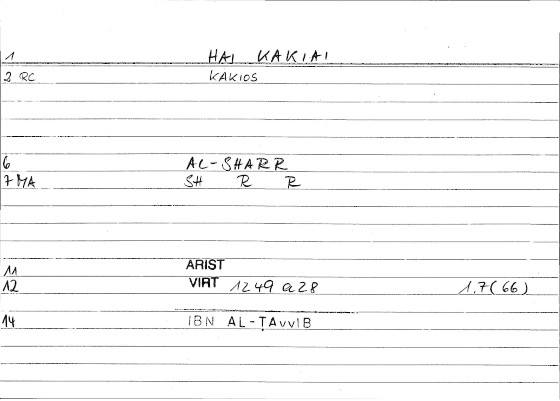 1 HAI KAKIAI
2 RC KAKIOS
6 AL-SHARR
7 MA SH R R
11 ARIST
12 VIRT 1249 a28 1.7(66)
14 IBN AL-ṬAYYIB